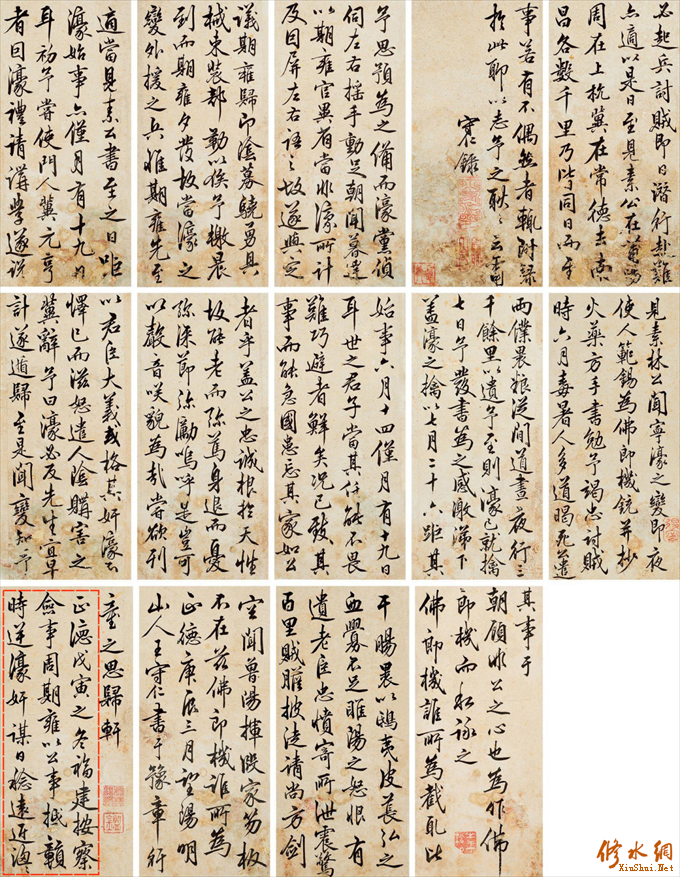 見素林公聞寧濠之變即夜
使人範錫為佛郎機銃并抄
火藥方手書勉予竭忠討賊
時六月毒暑人多道暍死公遣
兩僕裹糧從間道晝夜行三
千餘里以遺予至則濠已就擒
七日予發書為之感激涕下
蓋濠之擒以七月二十六距其
始事六月十四僅月有十九日
耳世之君子當其任能不畏
難巧避者鮮矣況已致其
事而能急國患忘其家如公
者乎蓋公之忠誠根於天性
故能老而彌篤身退而憂
彌深節彌勵嗚呼是豈可
以聲音咲貌為哉嘗欲列
其事于
朝顧非公之心也為作佛
郎機而私詠之
佛郎機誰所為截取比
干腸裹以鴟夷皮萇弘之
血釁不足睢陽之怒恨有
遺老臣忠憤寄所泄震驚
百里賊膽披徒請尚方劍
空聞魯陽揮段家笏板
不在茲佛郎機誰所為
正德庚辰三月望陽明
山人王守仁書于豫章行
臺之思歸軒
正德戊寅之冬福建按察
僉事周期雍以公事抵贛
時逆濠奸謀日稔遠近洶洶
予思預為之備而濠黨偵
伺左右搖手動足朝聞暮達
以期雍官異省當非濠所計
及因屏左右語之故遂與定
議期雍歸即陰募驍勇具
械束裝部勒以俟予檄晨
到而期雍夕發故當濠之
變外援之兵惟期雍先至
適當見素公書至之日距
濠始事亦僅月有十九日
耳初予嘗使門人冀元亨
者因濠禮請講學遂說
以君臣大義或格其奸濠不
懌已而滋怒遣人陰購害之
冀辭予曰濠必反先生宜早
計遂遁歸至是聞變知予
必起兵討賊即日潛行赴難
亦適以是日至見素公在莆陽
周在上杭冀在常德去南
昌各數千里乃皆同日而至
事若有不偶然者輒附錄
於此聊以志予之耿耿云爾
守仁錄
修水網
XiuShui.Net